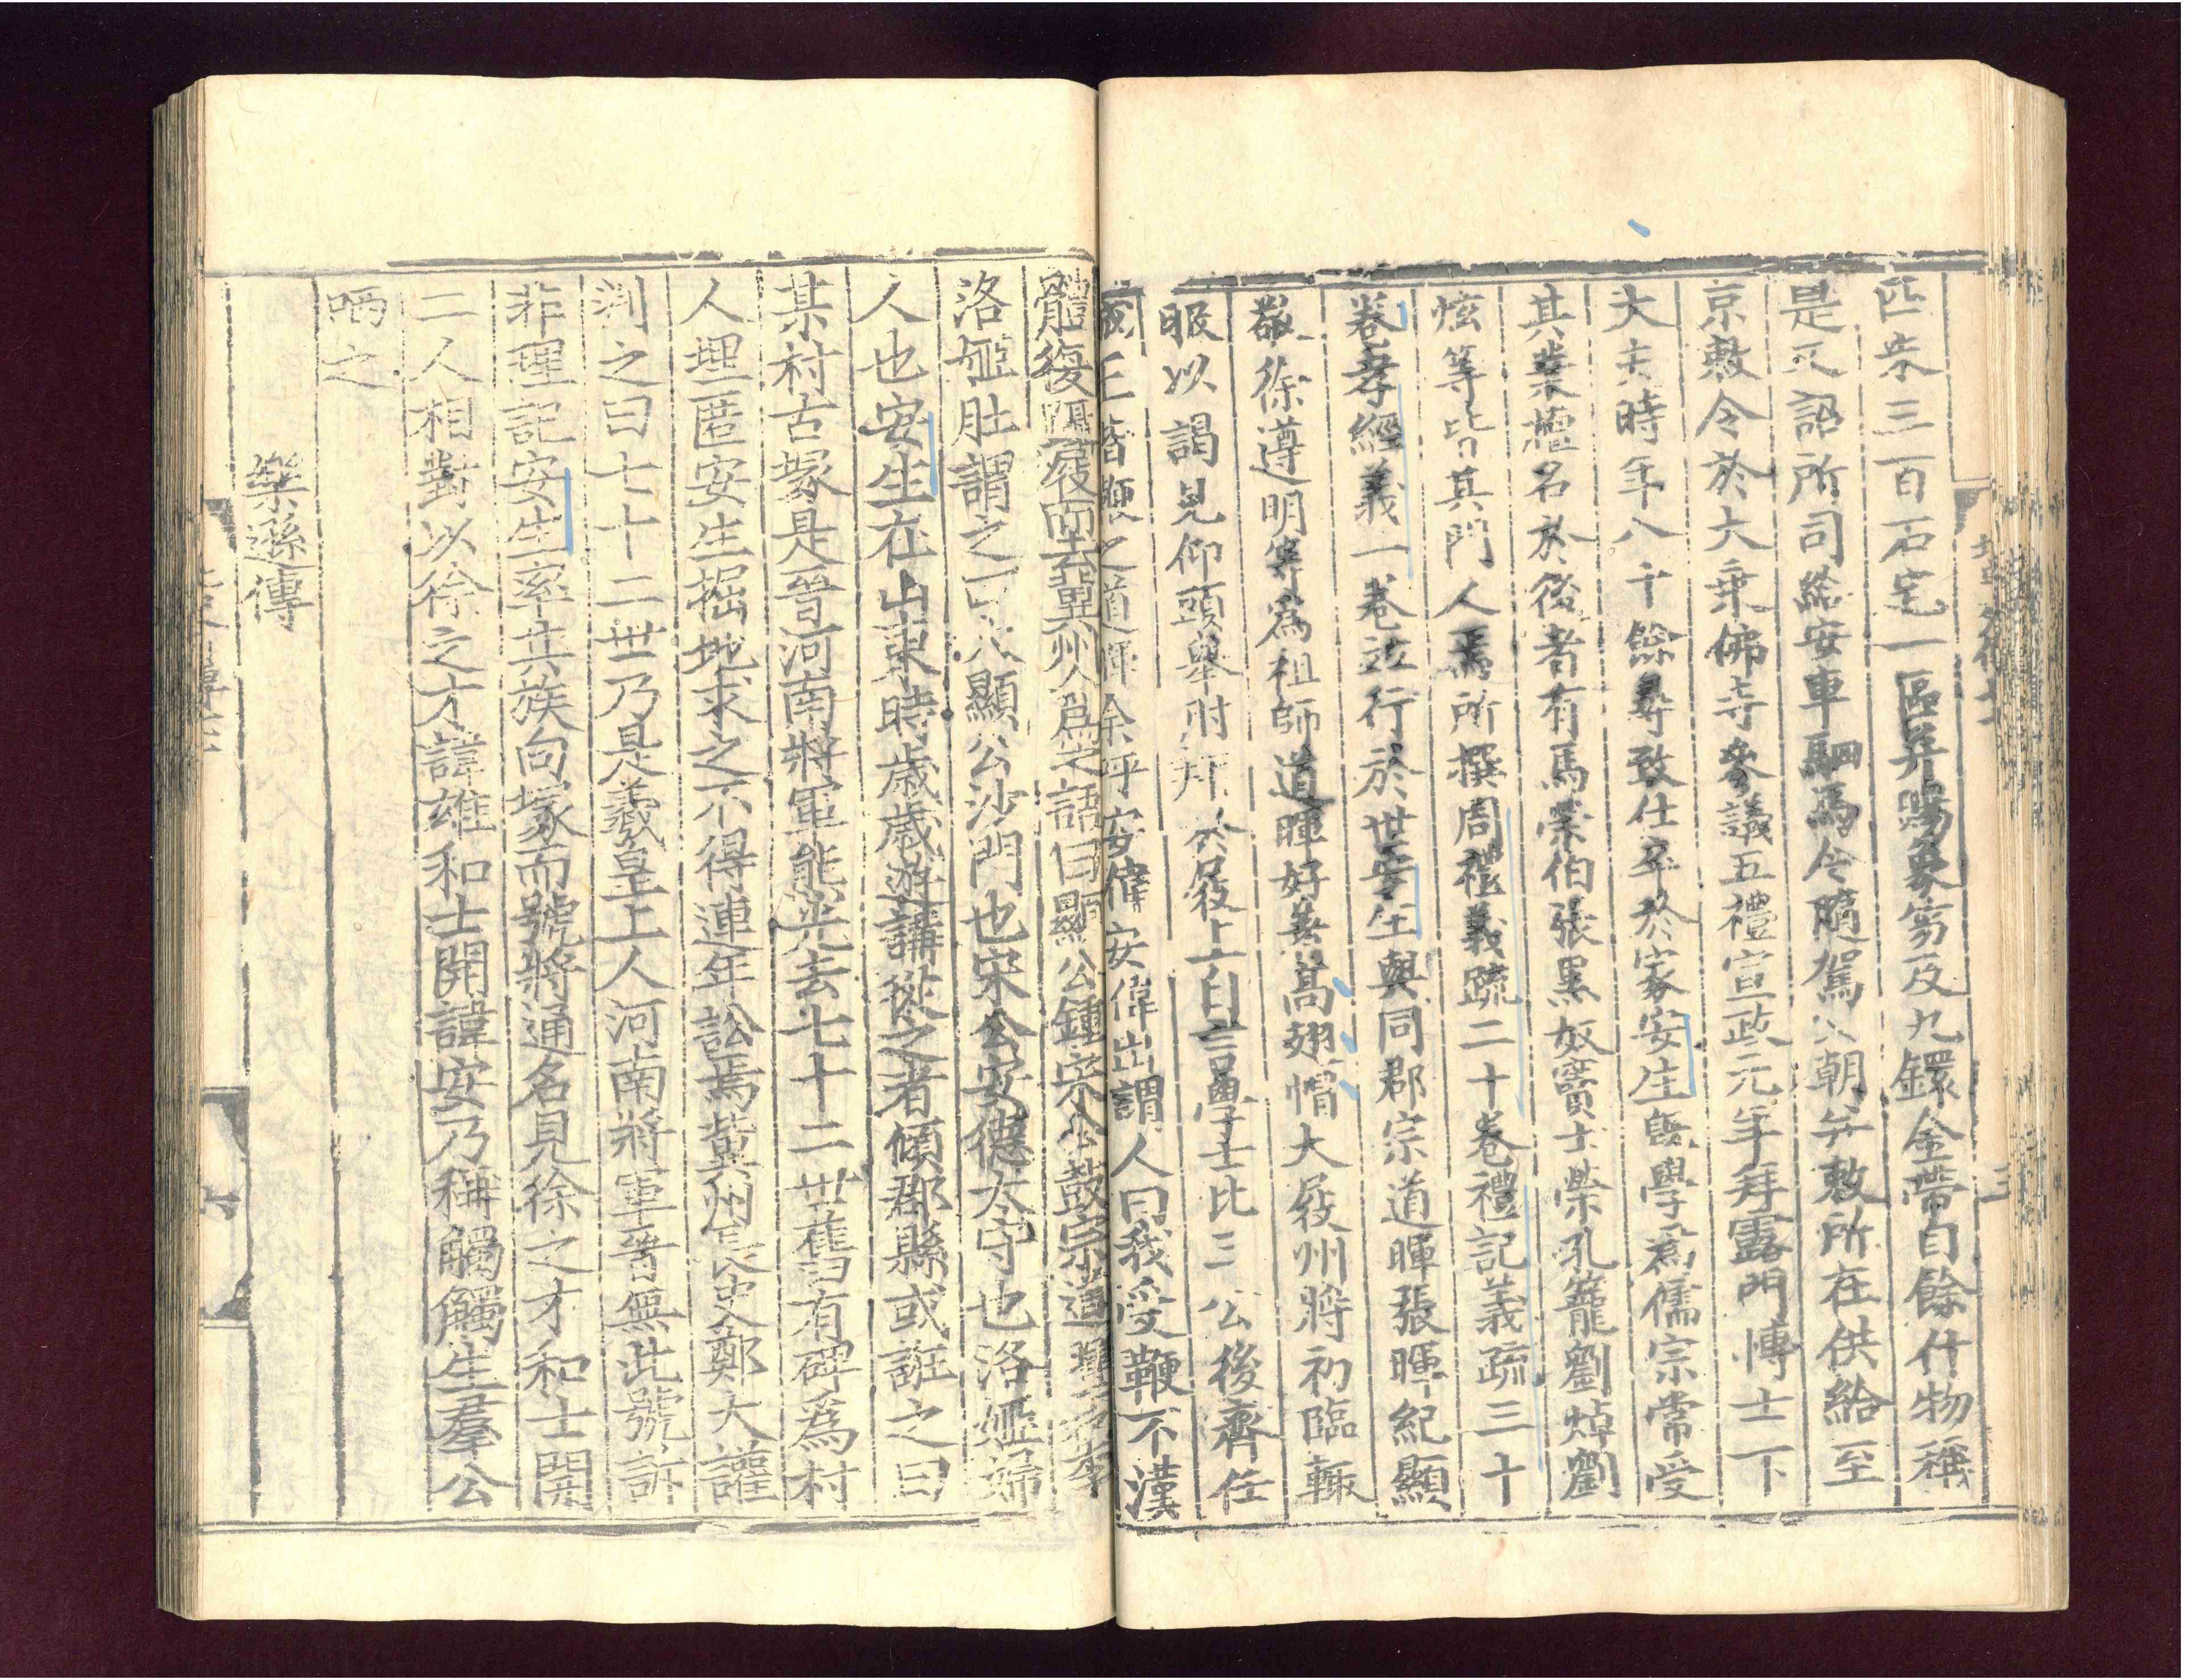 匹粟三百石宅一區幷賜象笏及九鐶金帶自餘什物稱
是又詔所司給安車駟馬令隨駕入朝幷敕所在供給至
京敕令於大乗佛寺參議五禮宣政元年拜露門博士下
大夫時年八十餘尋致仕卒於家安生旣學爲儒宗常受
其業擅名於後者有馬榮伯張黑奴竇士榮孔籠劉焯劉
炫等皆其門人焉所撰周禮義疏二十卷禮記義疏三十
卷孝經義一卷並行於世安生與同郡宗道暉張暉紀顯
敬徐遵明等爲祖師道暉好著高翅帽大屐州將初臨輒
服以謁見仰頭舉肘拜於屐上自言學士比三公後齊任
鞭之道暉徐呼安偉安偉出謂人曰我受鞭不漢
體復躡屐而去冀州人爲之語曰顯公鍾宋公鼓宗道暉
洛姬肚謂之顯公沙門也宋公安德太守也洛姬婦
人也安生在山東時歲歲遊講從之者傾郡縣或誑之曰
某村古塚是晉河南將軍熊光去七十二世舊有碑爲村
人埋匿安生掘地求之不得連年訟焉冀州長史鄭大讙
判之曰七十二世乃是羲皇上人河南將軍晉無此號訴
非理記安生率其族向塚而號將通名見徐之才和士開
二人相對以徐之才諱雄和士開諱安乃稱觸觸生羣公
哂之
樂遜傳